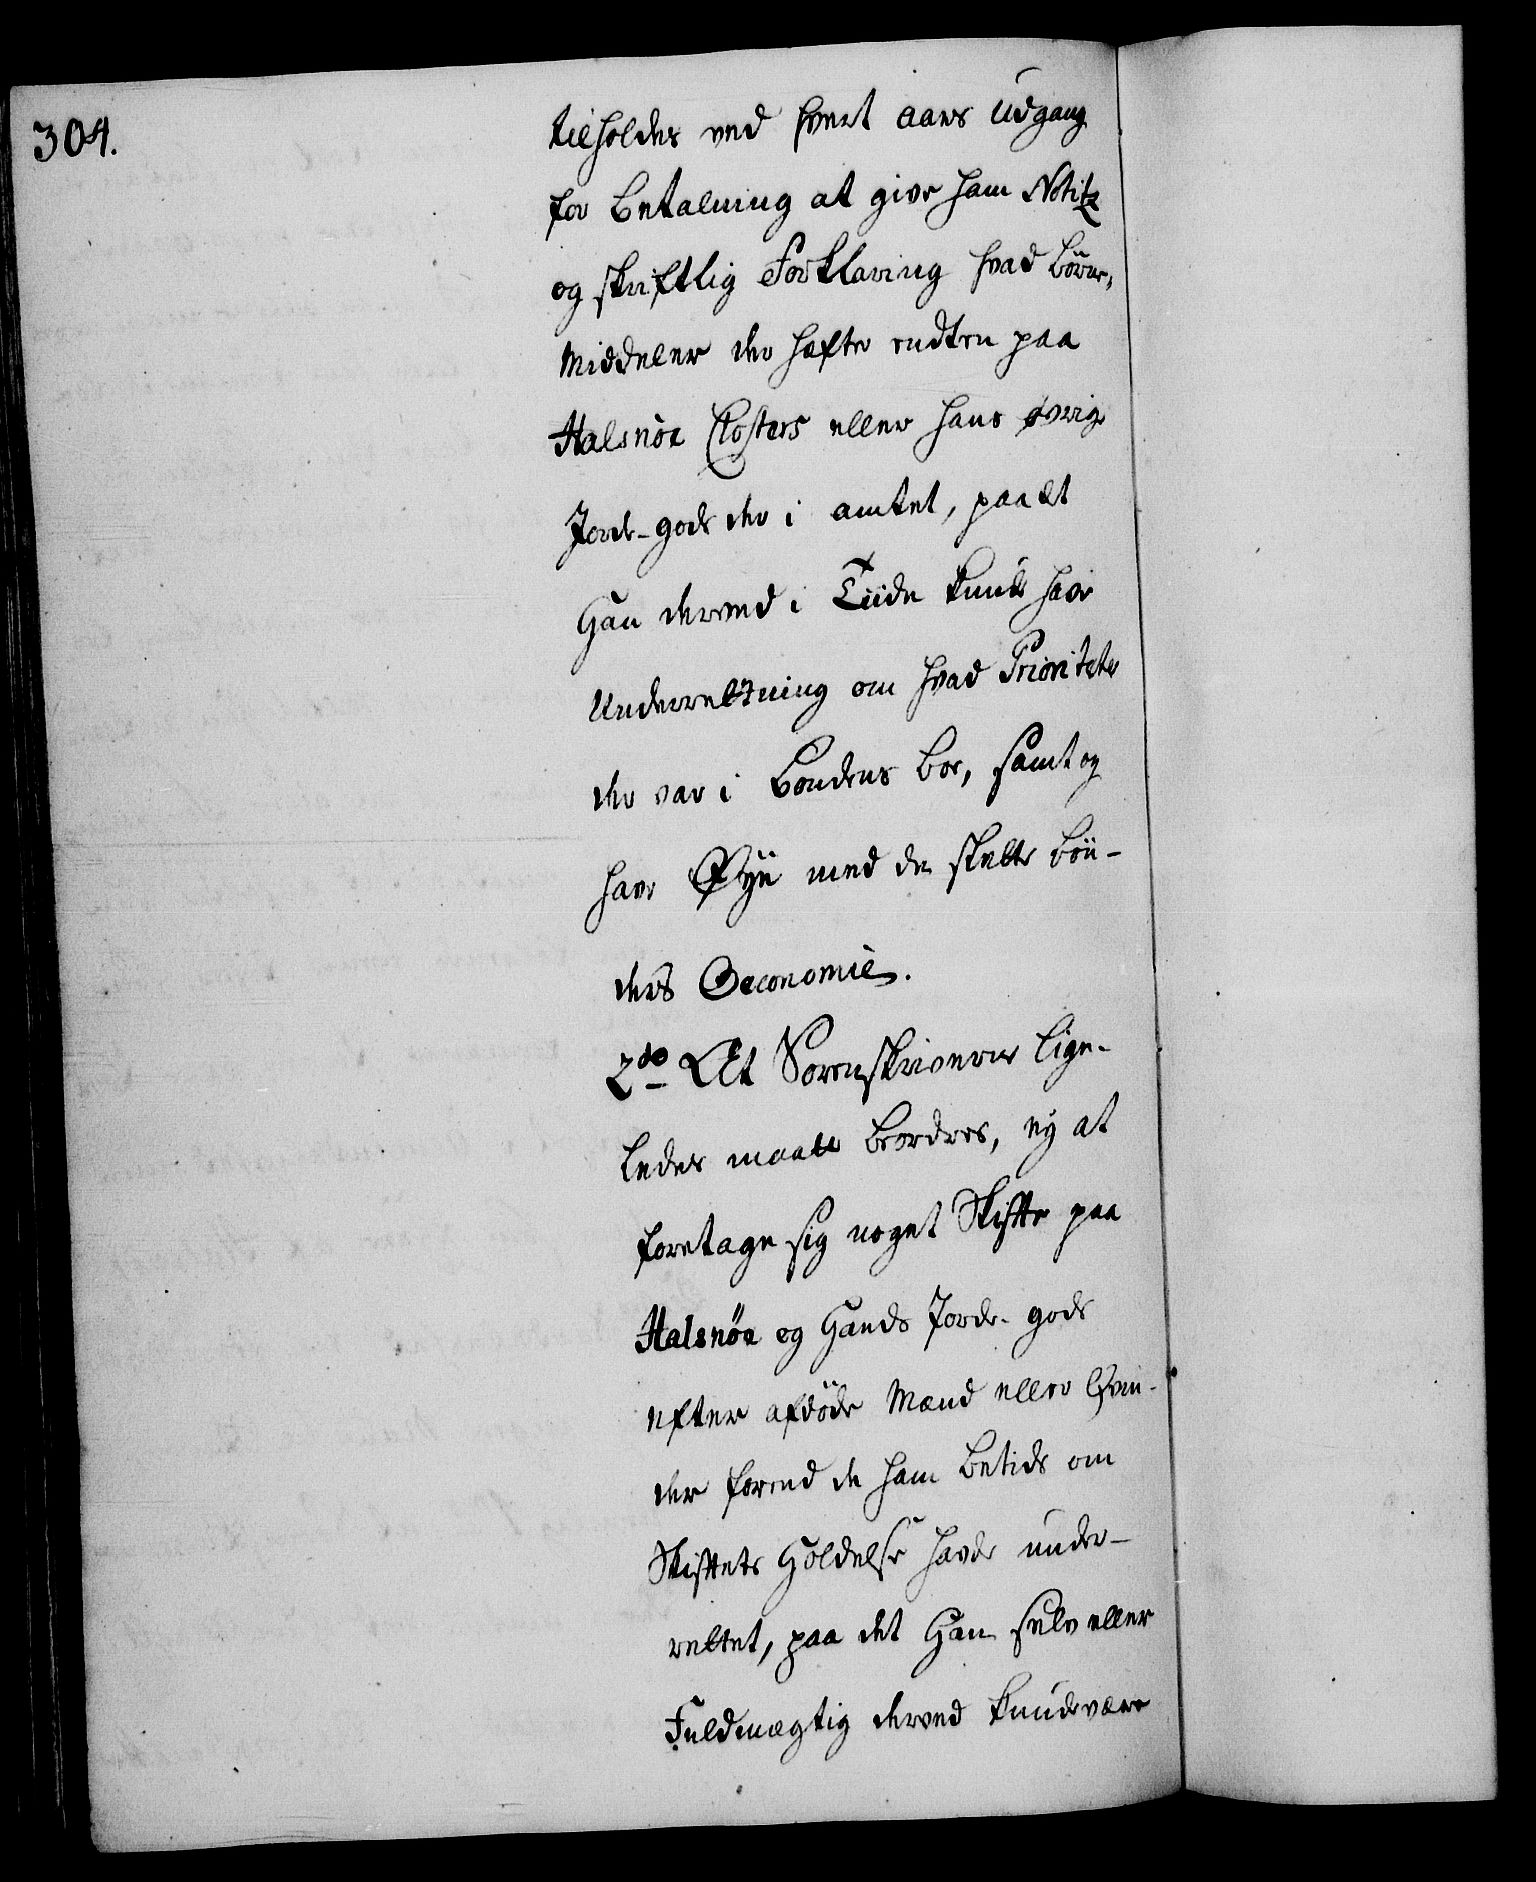 304.
tilholdes ved hvert aars Udgang
for betalning at give ham Notitz
og skriftlig Forklaring hvad børne-
Middeler der hafte endten paa
Halsnöe Closters eller hans øvrige
Jorde-gods der i amtet, paa det
Han derved i Tiide kunde have
Underretning om hvad Prioritete
der var i Bondens boe, samt og
have Øye med de slette bön-
ders Oeconomie.
2do At Sorenskriverne lige-
ledes maatte beordres, ey at
foretage sig noget Skifte paa
Halsnöe og Hands Jorde-gods
efter afdöde Mænd eller Qvin-
der forend de ham betids om
Skiftets Holdelse havde under-
rettet, paa det Han selv eller
Fuldmægtig derved kunde være